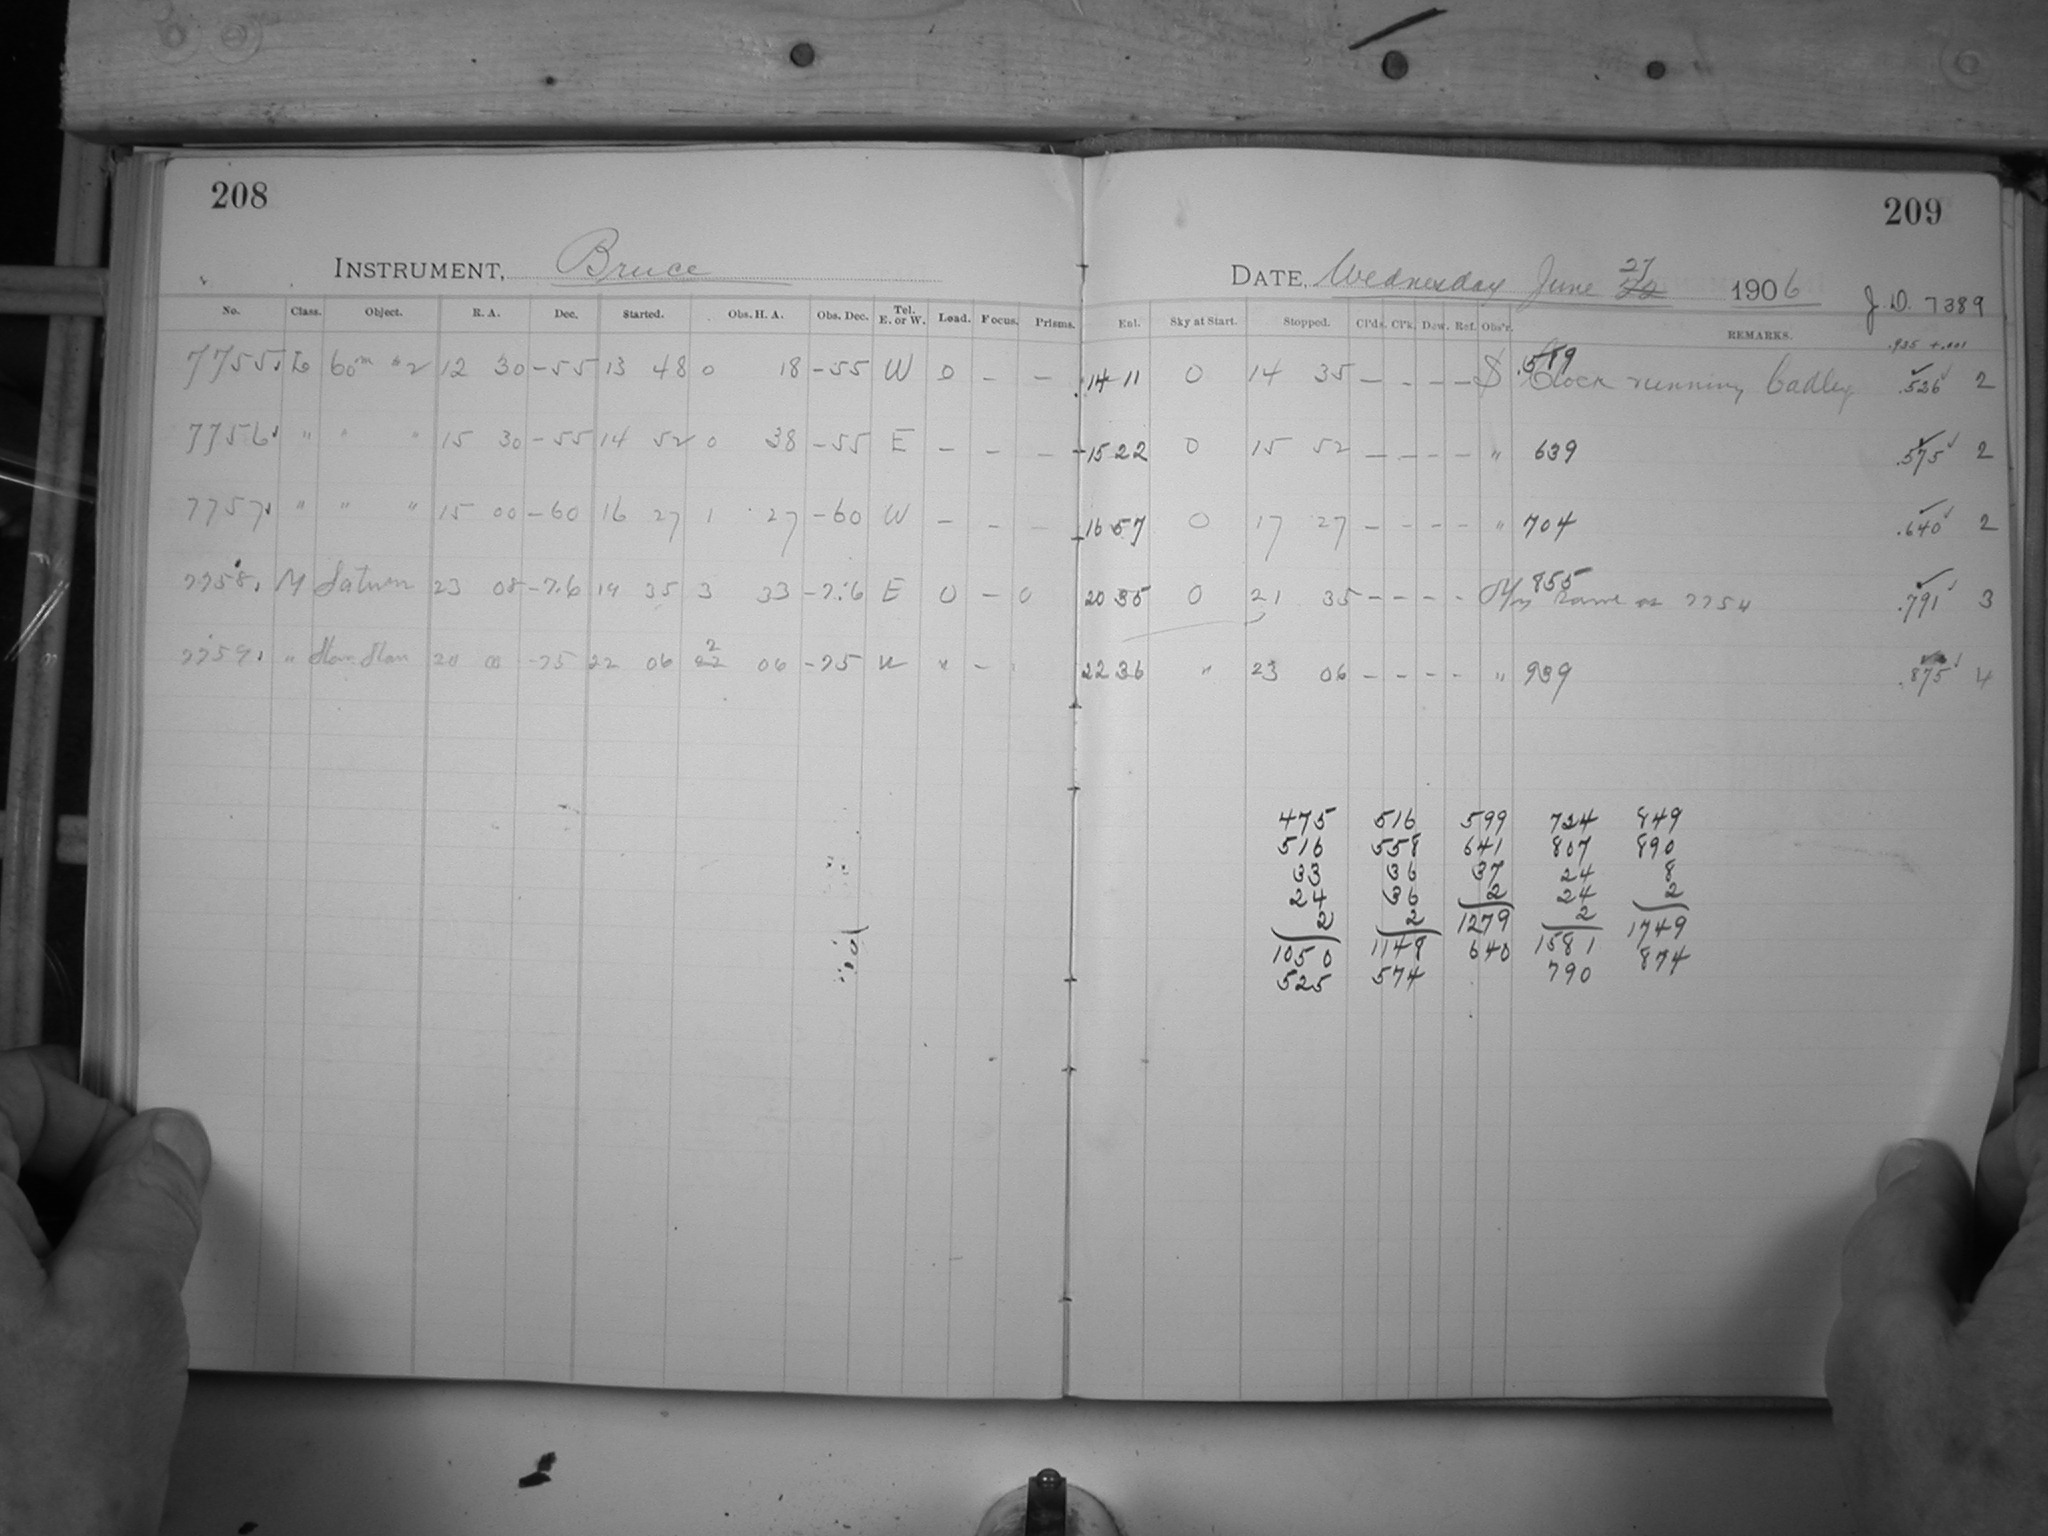 208
209
INSTRUMENT, Bruce
DATE, Wednesday June 27 1906 J.D. 7389
No. Class. Object. R. A. Dec. Started. Obs. H. A. Obs. Dec. Tel. E. or W. Load. Focus. Prisms. Enl. Sky at Start. Stopped. Cl'ds. Cl'k. Dew. Ref. Obs'r. REMARKS.
.935 +.001
7755. L 60m #2 12 30 -55 13 48 0 18 -55 W 0 - - 14 11 0 14 35 - - - - S .589 Clock running badly .526 2
7756. " " " 15 30 -55 14 52 0 38 -55 E - - - 15 22 0 15 52 - - - - " 639 .575 2
7757. " " " 15 00 -60 16 27 1 27 -60 W - - - 16 57 0 17 27 - - - - " 704 .640 2
7758. M Saturn 23 08 -7.6 19 35 3 33 -7.6 E 0 - 0 20 35 0 21 35 - - - - 855 same as 7754 .791 3
7759. " 20 00 -75 22 06 2 06 -75 W " - 22 36 " 23 06 - - - - " 939 .875 4
475 516 599 724 849
516 558 641 807 890
33 36 37 24 8
24 36 2 24 2
2 2 1279 2 1749
1050 1148 640 1581 874
525 574 790